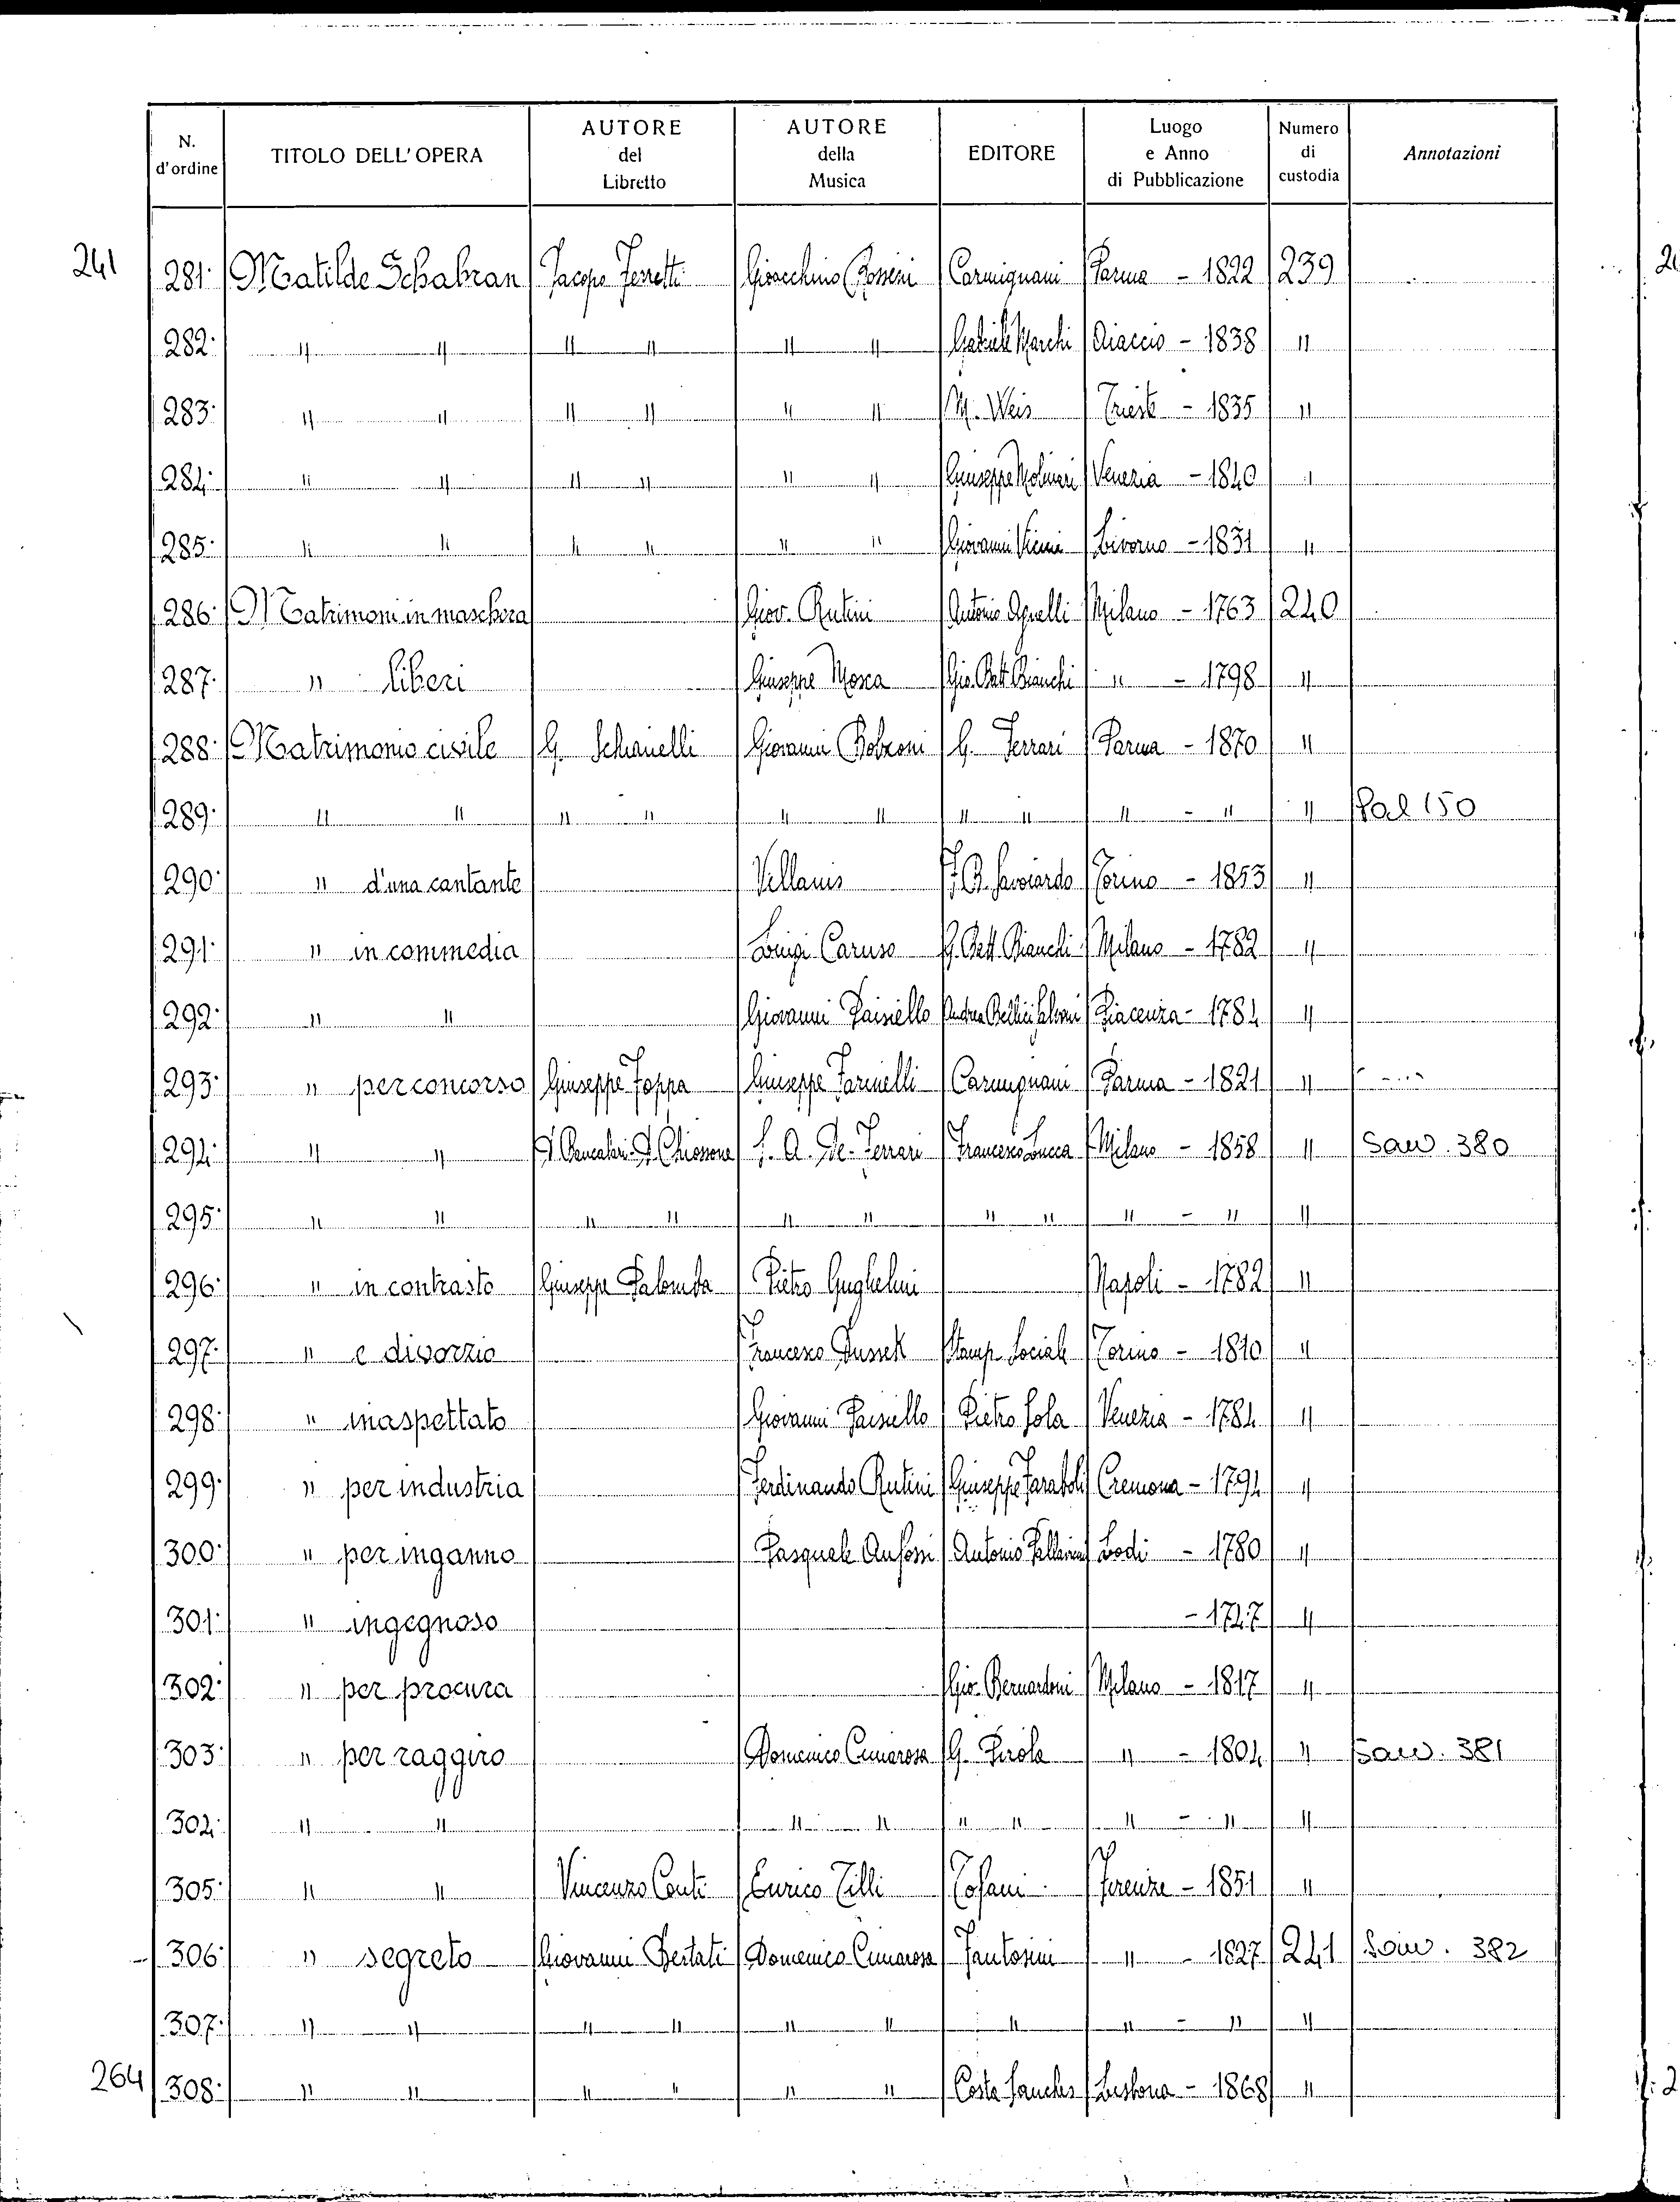 N. d'ordine | TITOLO DELL'OPERA | AUTORE del Libretto | AUTORE della Musica | EDITORE | Luogo e Anno di Pubblicazione | Numero di custodia | Annotazioni
241 281. Matilde Schabran Jacopo Ferretti Gioacchino Rossini Carmignani Parma - 1822 239
282. " " " " " " Gabriele Marchi Aiaccio - 1838 "
283. " " " " " " M. Weis Trieste - 1835 "
284. " " " " " " Giuseppe Molinari Venezia - 1840 "
285. " " " " " " Giovanni Vicini Livorno - 1831 "
286. Matrimoni in maschera Giov. Rutini Antonio Agnelli Milano - 1763 240
287. " liberi Giuseppe Mosca Gio. Batt. Bianchi " - 1798 "
288. Matrimonio civile G. Giovanni Bolzoni G. Ferrari Parma - 1870 "
289. " " " " " " " " " - " " Pal 150
290. " d'una cantante Villanis Savoiardo Torino - 1853 "
291. " in commedia Luigi Caruso G. Batt. Bianchi Milano - 1782 "
292. " " Giovanni Paisiello Andrea Bellici Salvoni Piacenza - 1784 "
293. " per concorso Giuseppe Foppa Giuseppe Farinelli Carmignani Parma - 1821 "
294. " " Chiossone S. A. De-Ferrari Francesco Lucca Milano - 1858 " Saw. 380
295. " " " " " " " " " - " "
296. " in contrasto Giuseppe Palomba Pietro Guglielmi Napoli - 1782 "
297. " e divorzio Francesco Dussek Stamp. Sociale Torino - 1810 "
298. " inaspettato Giovanni Paisiello Pietro Sola Venezia - 1784 "
299. " per industria Ferdinando Rutini Giuseppe Feraboli Cremona - 1794 "
300. " per inganno Pasquale Anfossi Antonio Pallavicini Lodi - 1780 "
301. " ingegnoso - 1727 "
302. " per procura Gio. Bernardoni Milano - 1817 "
303. " per raggiro Domenico Cimarosa G. Pirola " - 1804 " Saw. 381
304. " " " " " " " - " "
305. " " Vincenzo Conti Enrico Tilli Tofani Firenze - 1851 "
306. " segreto Giovanni Bertati Domenico Cimarosa Fantosini " - 1827 241 Saw. 382
307. " " " " " " " " - " "
264 308. " " " " " " Costa Sanches Lisbona - 1868 "